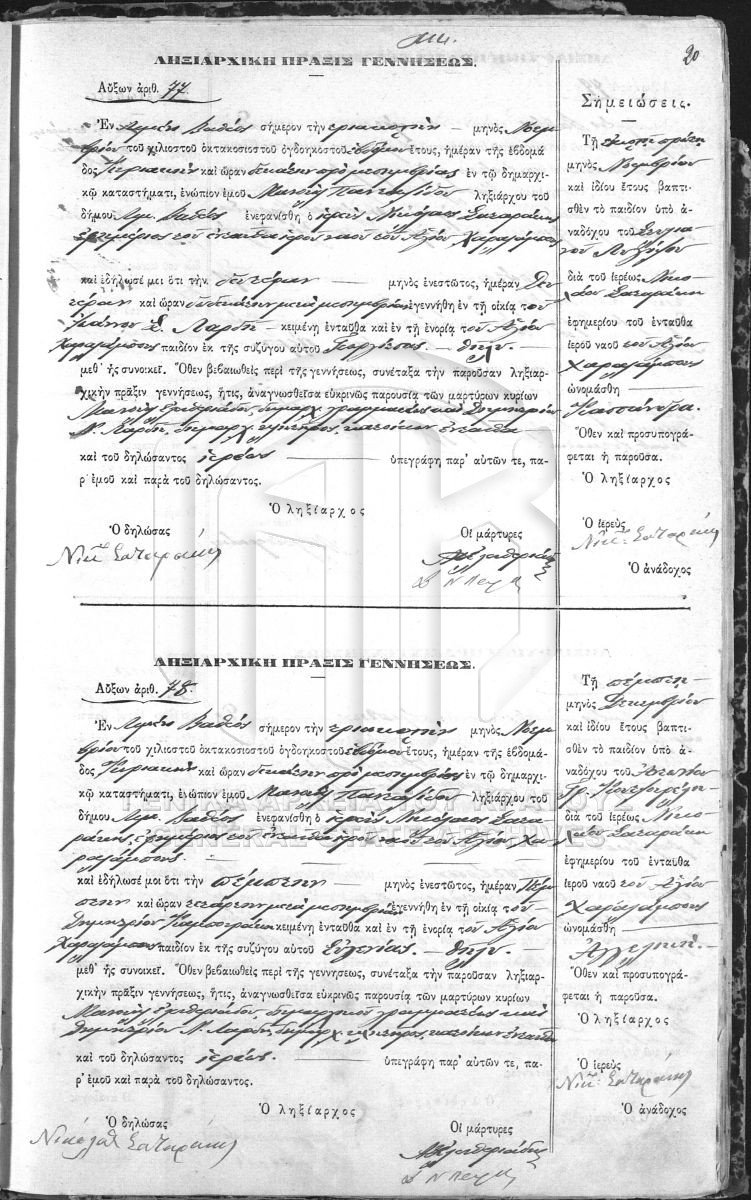 20
ΛΗΞΙΑΡΧΙΚΗ ΠΡΑΞΙΣ ΓΕΝΝΗΣΕΩΣ.
Αὔξων ἀριθ. 77.
Ἐν Λιμένι Βαθέος σήμερον τὴν τριακοστὴν μηνὸς Νοεμ
βρίου τοῦ χιλιοστοῦ ὀκτακοσιοστοῦ ὀγδοηκοστοῦ ἑβδόμου ἔτους, ἡμέραν τῆς ἑβδομά
δος Κυριακὴν καὶ ὥραν δεκάτην πρὸ μεσημβρίας ἐν τῷ δημαρχι-
κῷ καταστήματι, ἐνώπιον ἐμοῦ Μανουὴλ ληξιάρχου τοῦ
δήμου Λιμ. Βαθέος ἐνεφανίσθη ὁ ἱερεὺς Νικόλαος Σαταράκης
ἐφημέριος τοῦ ἐνταῦθα ἱεροῦ ναοῦ τοῦ Ἁγίου Χαραλάμπους
καὶ ἐδήλωσέ μοι ὅτι τὴν δευτέραν μηνὸς ἐνεστῶτος, ἡμέραν Δευ
τέραν καὶ ὥραν δωδεκάτην μετὰ μεσημβρίαν ἐγεννήθη ἐν τῇ οἰκίᾳ τοῦ
κειμένη ἐνταῦθα καὶ ἐν τῇ ἐνορίᾳ τοῦ Ἁγίου
Χαραλάμπους παιδίον ἐκ τῆς συζύγου αὐτοῦ θῆλυ.
μεθ' ἧς συνοικεῖ. Ὅθεν βεβαιωθεὶς περὶ τῆς γεννήσεως, συνέταξα τὴν παροῦσαν ληξιαρ-
χικὴν πρᾶξιν γεννήσεως, ἥτις, ἀναγνωσθεῖσα εὐκρινῶς παρουσίᾳ τῶν μαρτύρων κυρίων
Μανουὴλ γραμματέως καὶ Δημητρίου
Ν. κατοίκων ἐνταῦθα
καὶ τοῦ δηλώσαντος ἱερέως ὑπεγράφη παρ' αὐτῶν τε, πα-
ρ' ἐμοῦ καὶ παρὰ τοῦ δηλώσαντος.
Ὁ ληξίαρχος
Ὁ δηλώσας
Οἱ μάρτυρες
Νικ. Σαταράκης
Σημειώσεις.
Τῇ εἰκοστῇ πρώτῃ
μηνὸς Νοεμβρίου
καὶ ἰδίου ἔτους βαπτι-
σθὲν τὸ παιδίον ὑπὸ ἀ-
ναδόχου τοῦ
διὰ τοῦ ἱερέως Νικο
λάου Σαταράκη
ἐφημερίου τοῦ ἐνταῦθα
ἱεροῦ ναοῦ τοῦ Ἁγίου
Χαραλάμπους
ὠνομάσθη
Κασσάνδρα.
Ὅθεν καὶ προσυπογρά-
φεται ἡ παροῦσα.
Ὁ ληξίαρχος
Ὁ ἱερεὺς
Νικ. Σαταράκης
Ὁ ἀνάδοχος
ΛΗΞΙΑΡΧΙΚΗ ΠΡΑΞΙΣ ΓΕΝΝΗΣΕΩΣ.
Αὔξων ἀριθ. 78.
Ἐν Λιμένι Βαθέος σήμερον τὴν τριακοστὴν μηνὸς Νοεμ
βρίου τοῦ χιλιοστοῦ ὀκτακοσιοστοῦ ὀγδοηκοστοῦ ἑβδόμου ἔτους, ἡμέραν τῆς ἑβδομά-
δος Κυριακὴν καὶ ὥραν δεκάτην πρὸ μεσημβρίας ἐν τῷ δημαρχι-
κῷ καταστήματι, ἐνώπιον ἐμοῦ Μανουὴλ ληξιάρχου τοῦ
δήμου Λιμ. Βαθέος ἐνεφανίσθη ὁ ἱερεὺς Νικόλαος Σατα
ράκης, ἐφημέριος τοῦ ἐνταῦθα ἱεροῦ ναοῦ τοῦ Ἁγίου Χα
ραλάμπους.
καὶ ἐδήλωσέ μοι ὅτι τὴν πέμπτην μηνὸς ἐνεστῶτος, ἡμέραν Πέμ
πτην καὶ ὥραν τετάρτην μετὰ μεσημβρίαν ἐγεννήθη ἐν τῇ οἰκίᾳ τοῦ
Δημητρίου κειμένη ἐνταῦθα καὶ ἐν τῇ ἐνορίᾳ τοῦ Ἁγίου
Χαραλάμπους παιδίον ἐκ τῆς συζύγου αὐτοῦ Εὐγενίας. θῆλυ.
μεθ' ἧς συνοικεῖ. Ὅθεν βεβαιωθεὶς περὶ τῆς γεννήσεως, συνέταξα τὴν παροῦσαν ληξιαρ-
χικὴν πρᾶξιν γεννήσεως, ἥτις, ἀναγνωσθεῖσα εὐκρινῶς παρουσίᾳ τῶν μαρτύρων κυρίων
Μανουὴλ γραμματέως καὶ
Δημητρίου Ν. κατοίκων ἐνταῦθα
καὶ τοῦ δηλώσαντος ἱερέως. ὑπεγράφη παρ' αὐτῶν τε, πα-
ρ' ἐμοῦ καὶ παρὰ τοῦ δηλώσαντος.
Ὁ ληξίαρχος
Ὁ δηλώσας
Οἱ μάρτυρες
Νικόλαος Σαταράκης
Τῇ πέμπτῃ
μηνὸς Δεκεμβρίου
καὶ ἰδίου ἔτους βαπτι-
σθὲν τὸ παιδίον ὑπὸ ἀ-
ναδόχου τοῦ
διὰ τοῦ ἱερέως Νικο
λάου Σαταράκη
ἐφημερίου τοῦ ἐνταῦθα
ἱεροῦ ναοῦ τοῦ Ἁγίου
Χαραλάμπους
ὠνομάσθη
Ἀγγελική.
Ὅθεν καὶ προσυπογρά-
φεται ἡ παροῦσα.
Ὁ ληξίαρχος
Ὁ ἱερεὺς
Νικ. Σαταράκης
Ὁ ἀνάδοχος
ΓΕΝΙΚΑ ΑΡΧΕΙΑ ΤΟΥ ΚΡΑΤΟΥΣ
GENERAL STATE ARCHIVES